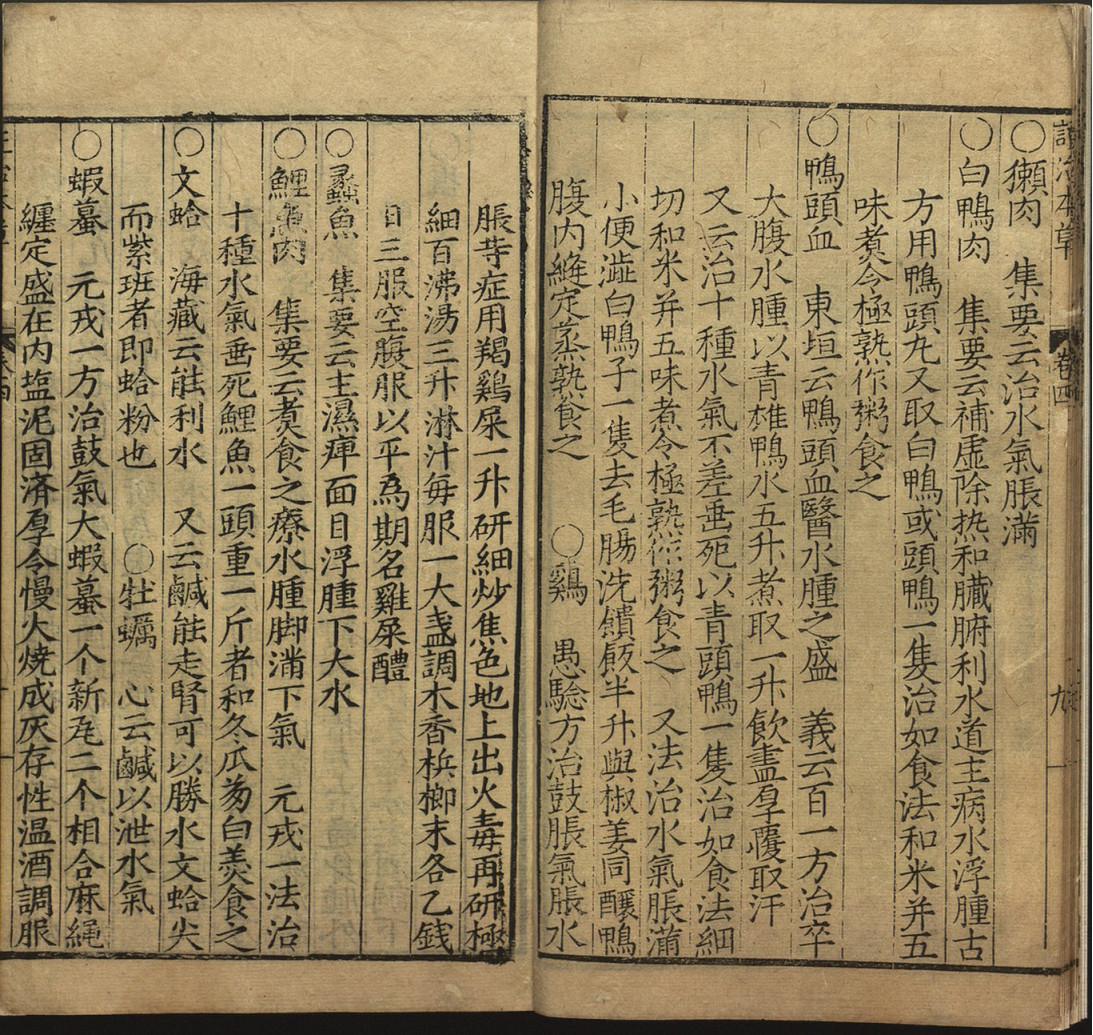 ○獺肉　集要云治水氣脹滿
○白鴨肉　集要云補虛除热和臟腑利水道主病水浮腫古
方用鴨頭丸又取白鴨或頭鴨一隻治如食法和米并五
味煮令極熟作粥食之
○鴨頭血　東垣云鴨頭血醫水腫之盛　義云百一方治卒
大腹水腫以青雄鴨水五升煮取一升飲盡厚覆取汗
又云治十種水氣不差垂死以青頭鴨一隻治如食法細
切和米并五味煮令極熟作粥食之　又法治水氣脹滿
小便澁白鴨子一隻去毛腸洗饋飯半升與椒姜同釀鴨
腹内縫定蒸熟食之　○鷄　愚驗方治鼓脹氣脹水
脹等症用羯鷄屎一升研細炒焦色地上出火毒再研極
細百沸湯三升淋汁每服一大盞調木香梹榔末各乙錢
日三服空腹服以平爲期名雞屎醴
○蠡魚　集要云主濕痺面目浮腫下大水
○鯉魚肉　集要云煮食之療水腫脚滿下氣　元戎一法治
十種水氣垂死鯉魚一頭重一斤者和冬瓜葱白羮食之
○文蛤　海藏云能利水　又云鹹能走腎可以勝水文蛤尖
而紫班者即蛤粉也　○牡蠣　心云鹹以泄水氣
○蝦蟇　元戎一方治鼓氣大蝦蟇一个新瓦二个相合麻縄
纏定盛在内塩泥固済厚令慢火燒成灰存性温酒調服
卷四
九